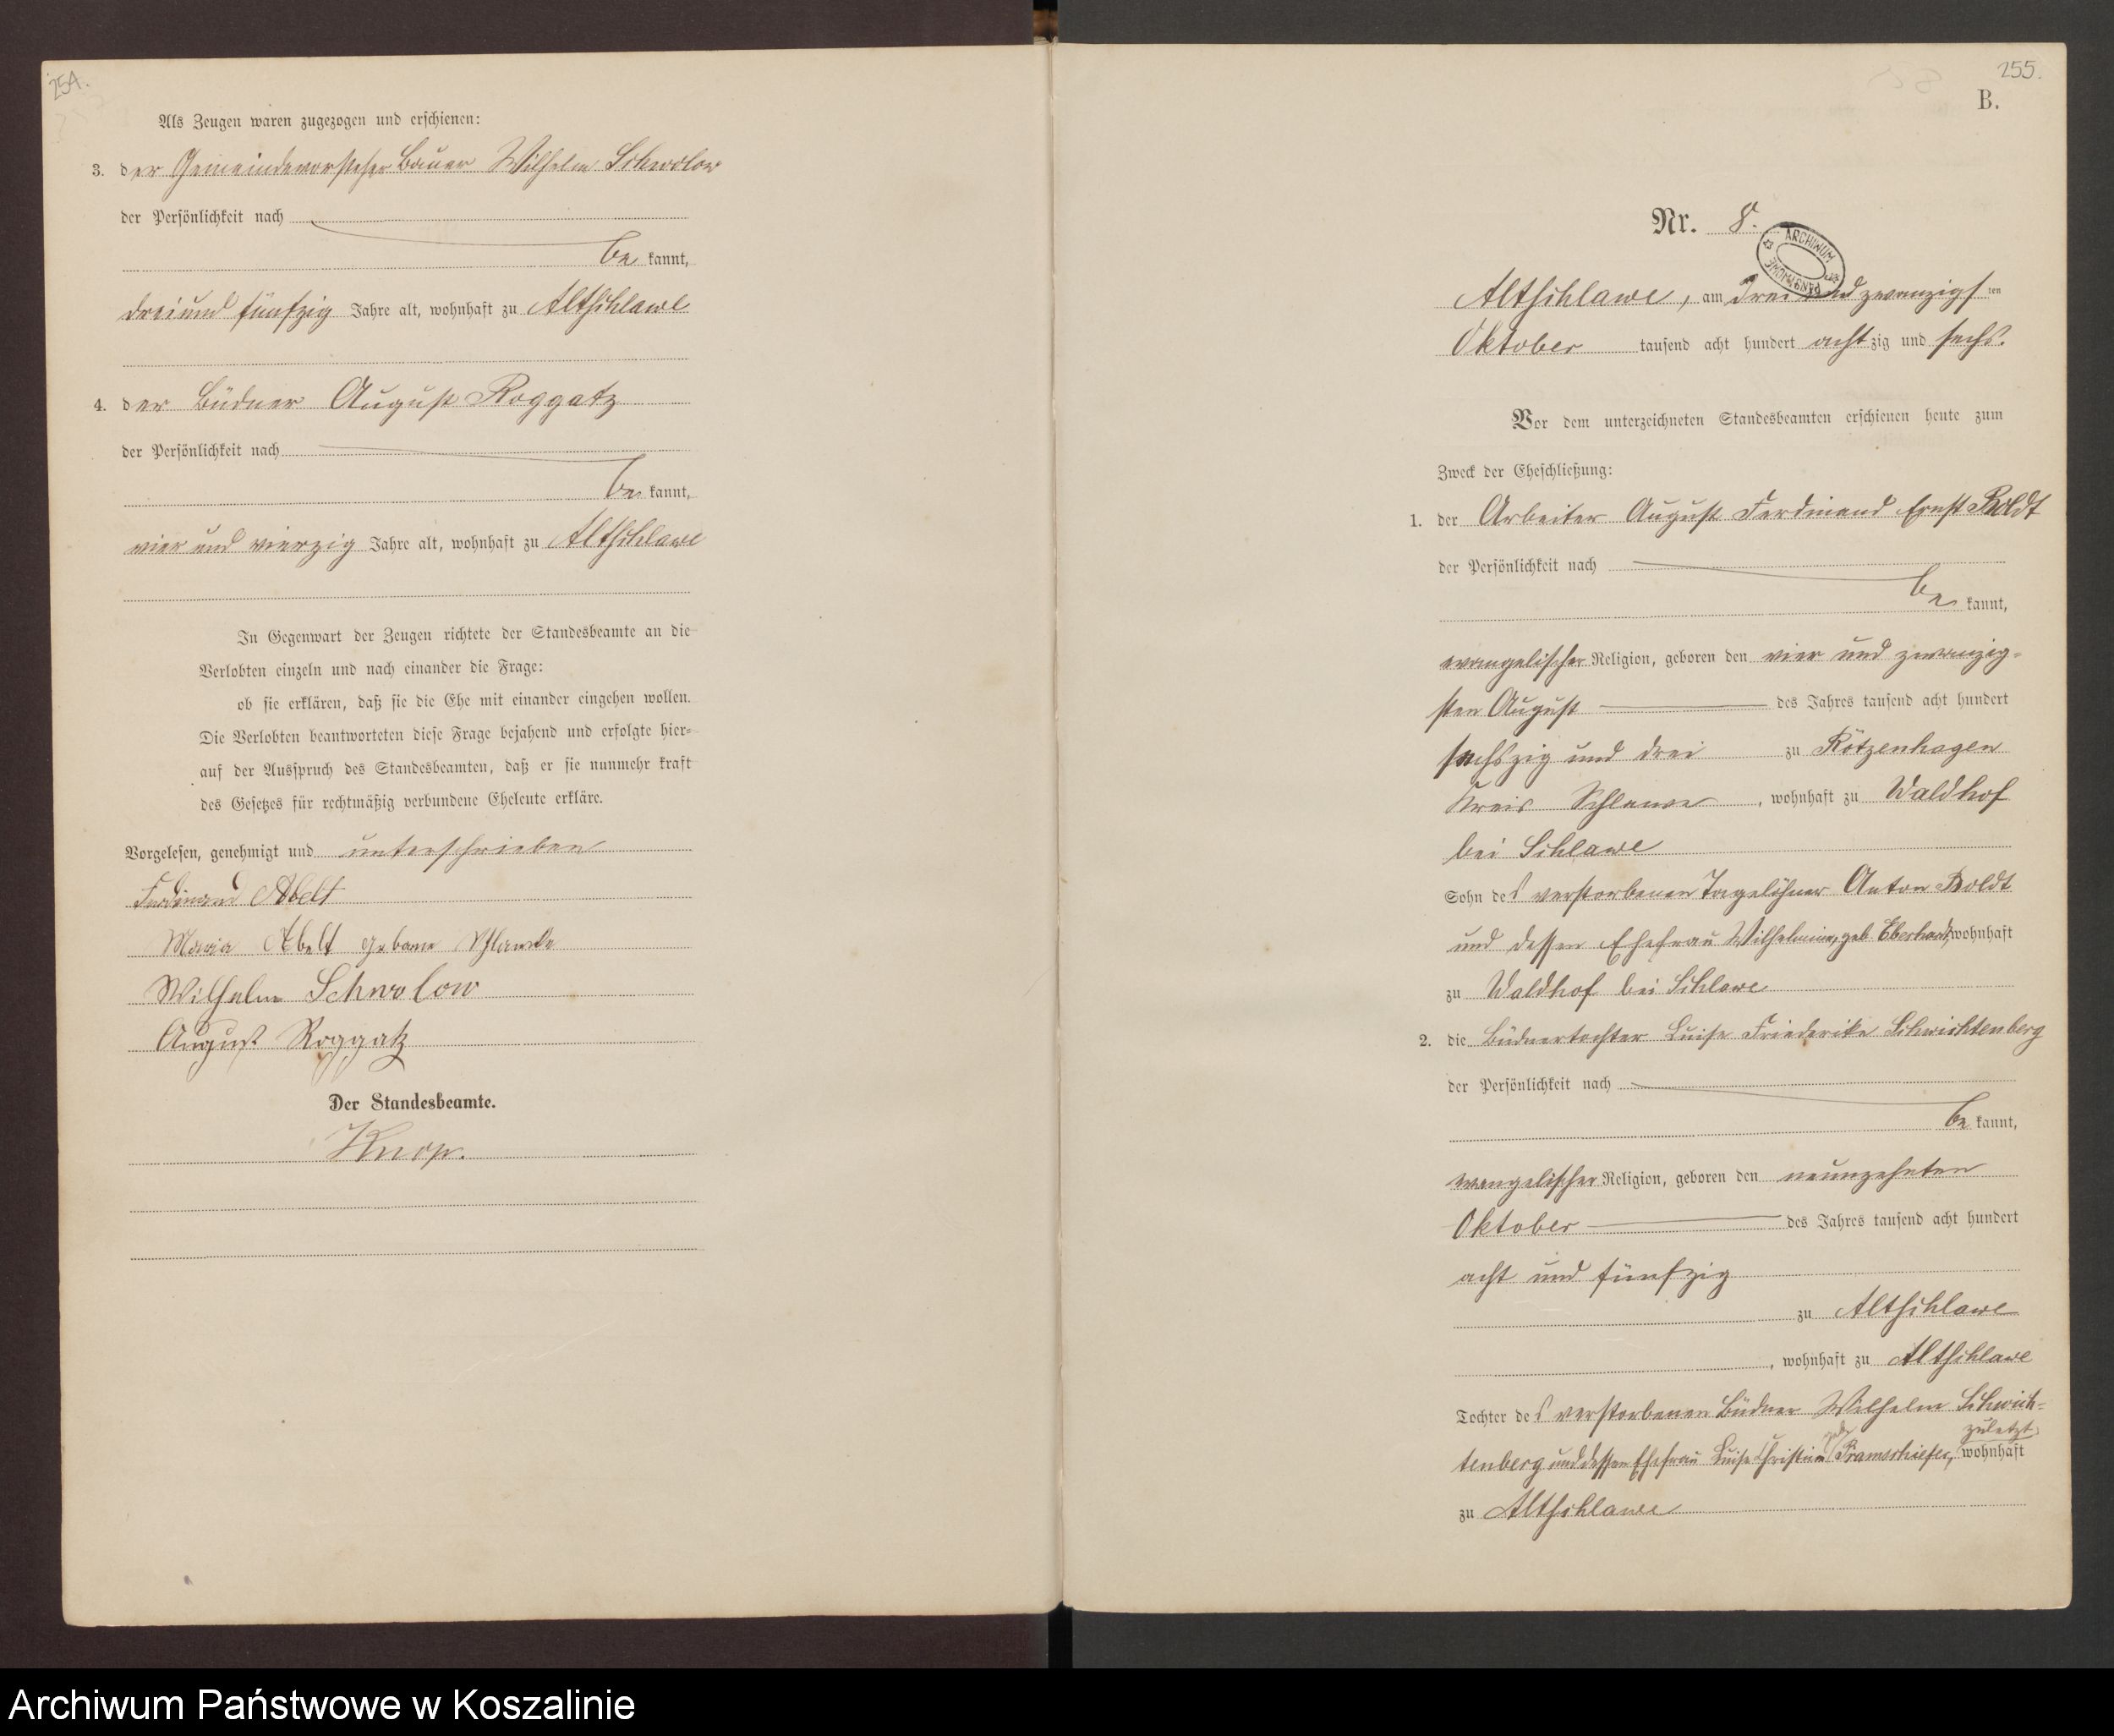 254.
Als Zeugen waren zugezogen und erschienen:
3. der Gemeindevorsteher Bauer Wilhelm Schwolow
der Persönlichkeit nach
be kannt,
dreiund fünfzig Jahre alt, wohnhaft zu Altschlawe
4. der Büdner August Roggatz
der Persönlichkeit nach
be kannt,
vier und vierzig Jahre alt, wohnhaft zu Altschlawe
In Gegenwart der Zeugen richtete der Standesbeamte an die
Verlobten einzeln und nach einander die Frage:
ob sie erklären, daß sie die Ehe mit einander eingehen wollen.
Die Verlobten beantworteten diese Frage bejahend und erfolgte hier-
auf der Ausspruch des Standesbeamten, daß er sie nunmehr kraft
des Gesetzes für rechtmäßig verbundene Eheleute erkläre.
Vorgelesen, genehmigt und unterschrieben
Ferdinand Abelt
Maria Abelt geborne
Wilhelm Schwolow
August Roggatz
Der Standesbeamte.
Knop.
255.
B.
Nr. 8.
ARCHIWUM PAŃSTWOWE
Altschlawe, am drei und zwanzigs ten
Oktober tausend acht hundert acht zig und sechs.
Vor dem unterzeichneten Standesbeamten erschienen heute zum
Zweck der Eheschließung:
1. der Arbeiter August Ferdinand Ernst Boldt
der Persönlichkeit nach
be kannt,
evangelischer Religion, geboren den vier und zwanzig-
sten August des Jahres tausend acht hundert
sechszig und drei zu Kötzenhagen
Kreis Schlawe, wohnhaft zu Waldhof
bei Schlawe
Sohn des verstorbenen Tagelöhner Anton Boldt
und dessen Ehefrau Wilhelmine, geb. Eberhardt, wohnhaft
zu Waldhof bei Schlawe
2. die Büdnertochter Luise Friederike Schwichtenberg
der Persönlichkeit nach
be kannt,
evangelischer Religion, geboren den neunzehnten
Oktober des Jahres tausend acht hundert
acht und fünfzig
zu Altschlawe
, wohnhaft zu Altschlawe
Tochter des verstorbenen Büdner Wilhelm Schwich-
zuletzt
tenberg und dessen Ehefrau Luise Christine geb. Pramschiefer, wohnhaft
zu Altschlawe
Archiwum Państwowe w Koszalinie